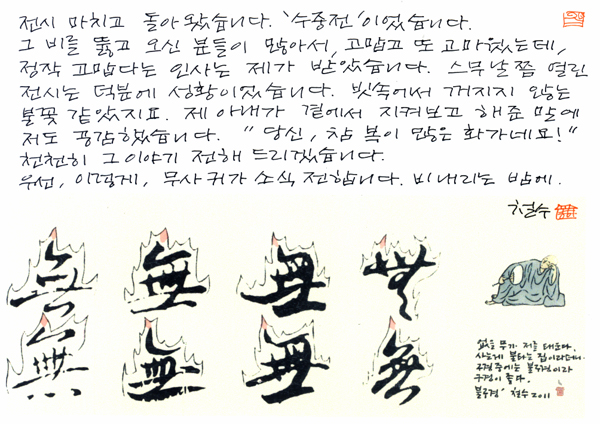 전시 마치고 돌아 왔습니다. '수중전'이었습니다.
그 비를 뚫고 오신 분들이 많아서, 고맙고 또 고마웠는데,
정작 고맙다는 인사는 제가 받았습니다. 스무날쯤 열린
전시는 덕분에 성황이었습니다. 빗속에서 꺼지지 않는
불꽃 같았지요. 제 아내가 곁에서 지켜보고 해준 말에
저도 공감했습니다. "당신, 참 복이 많은 화가네요!"
천천히 그 이야기 전해 드리겠습니다.
우선, 이렇게, 무사 귀가 소식 전합니다. 비내리는 밤에.
철수
無 無 無 無
無 無 無 無
없을 무가 저를 태운다.
사는게 불타는 집이라더니.
구경 중에는 불구경이라
구경이 좋다.
불구경 철수 2011